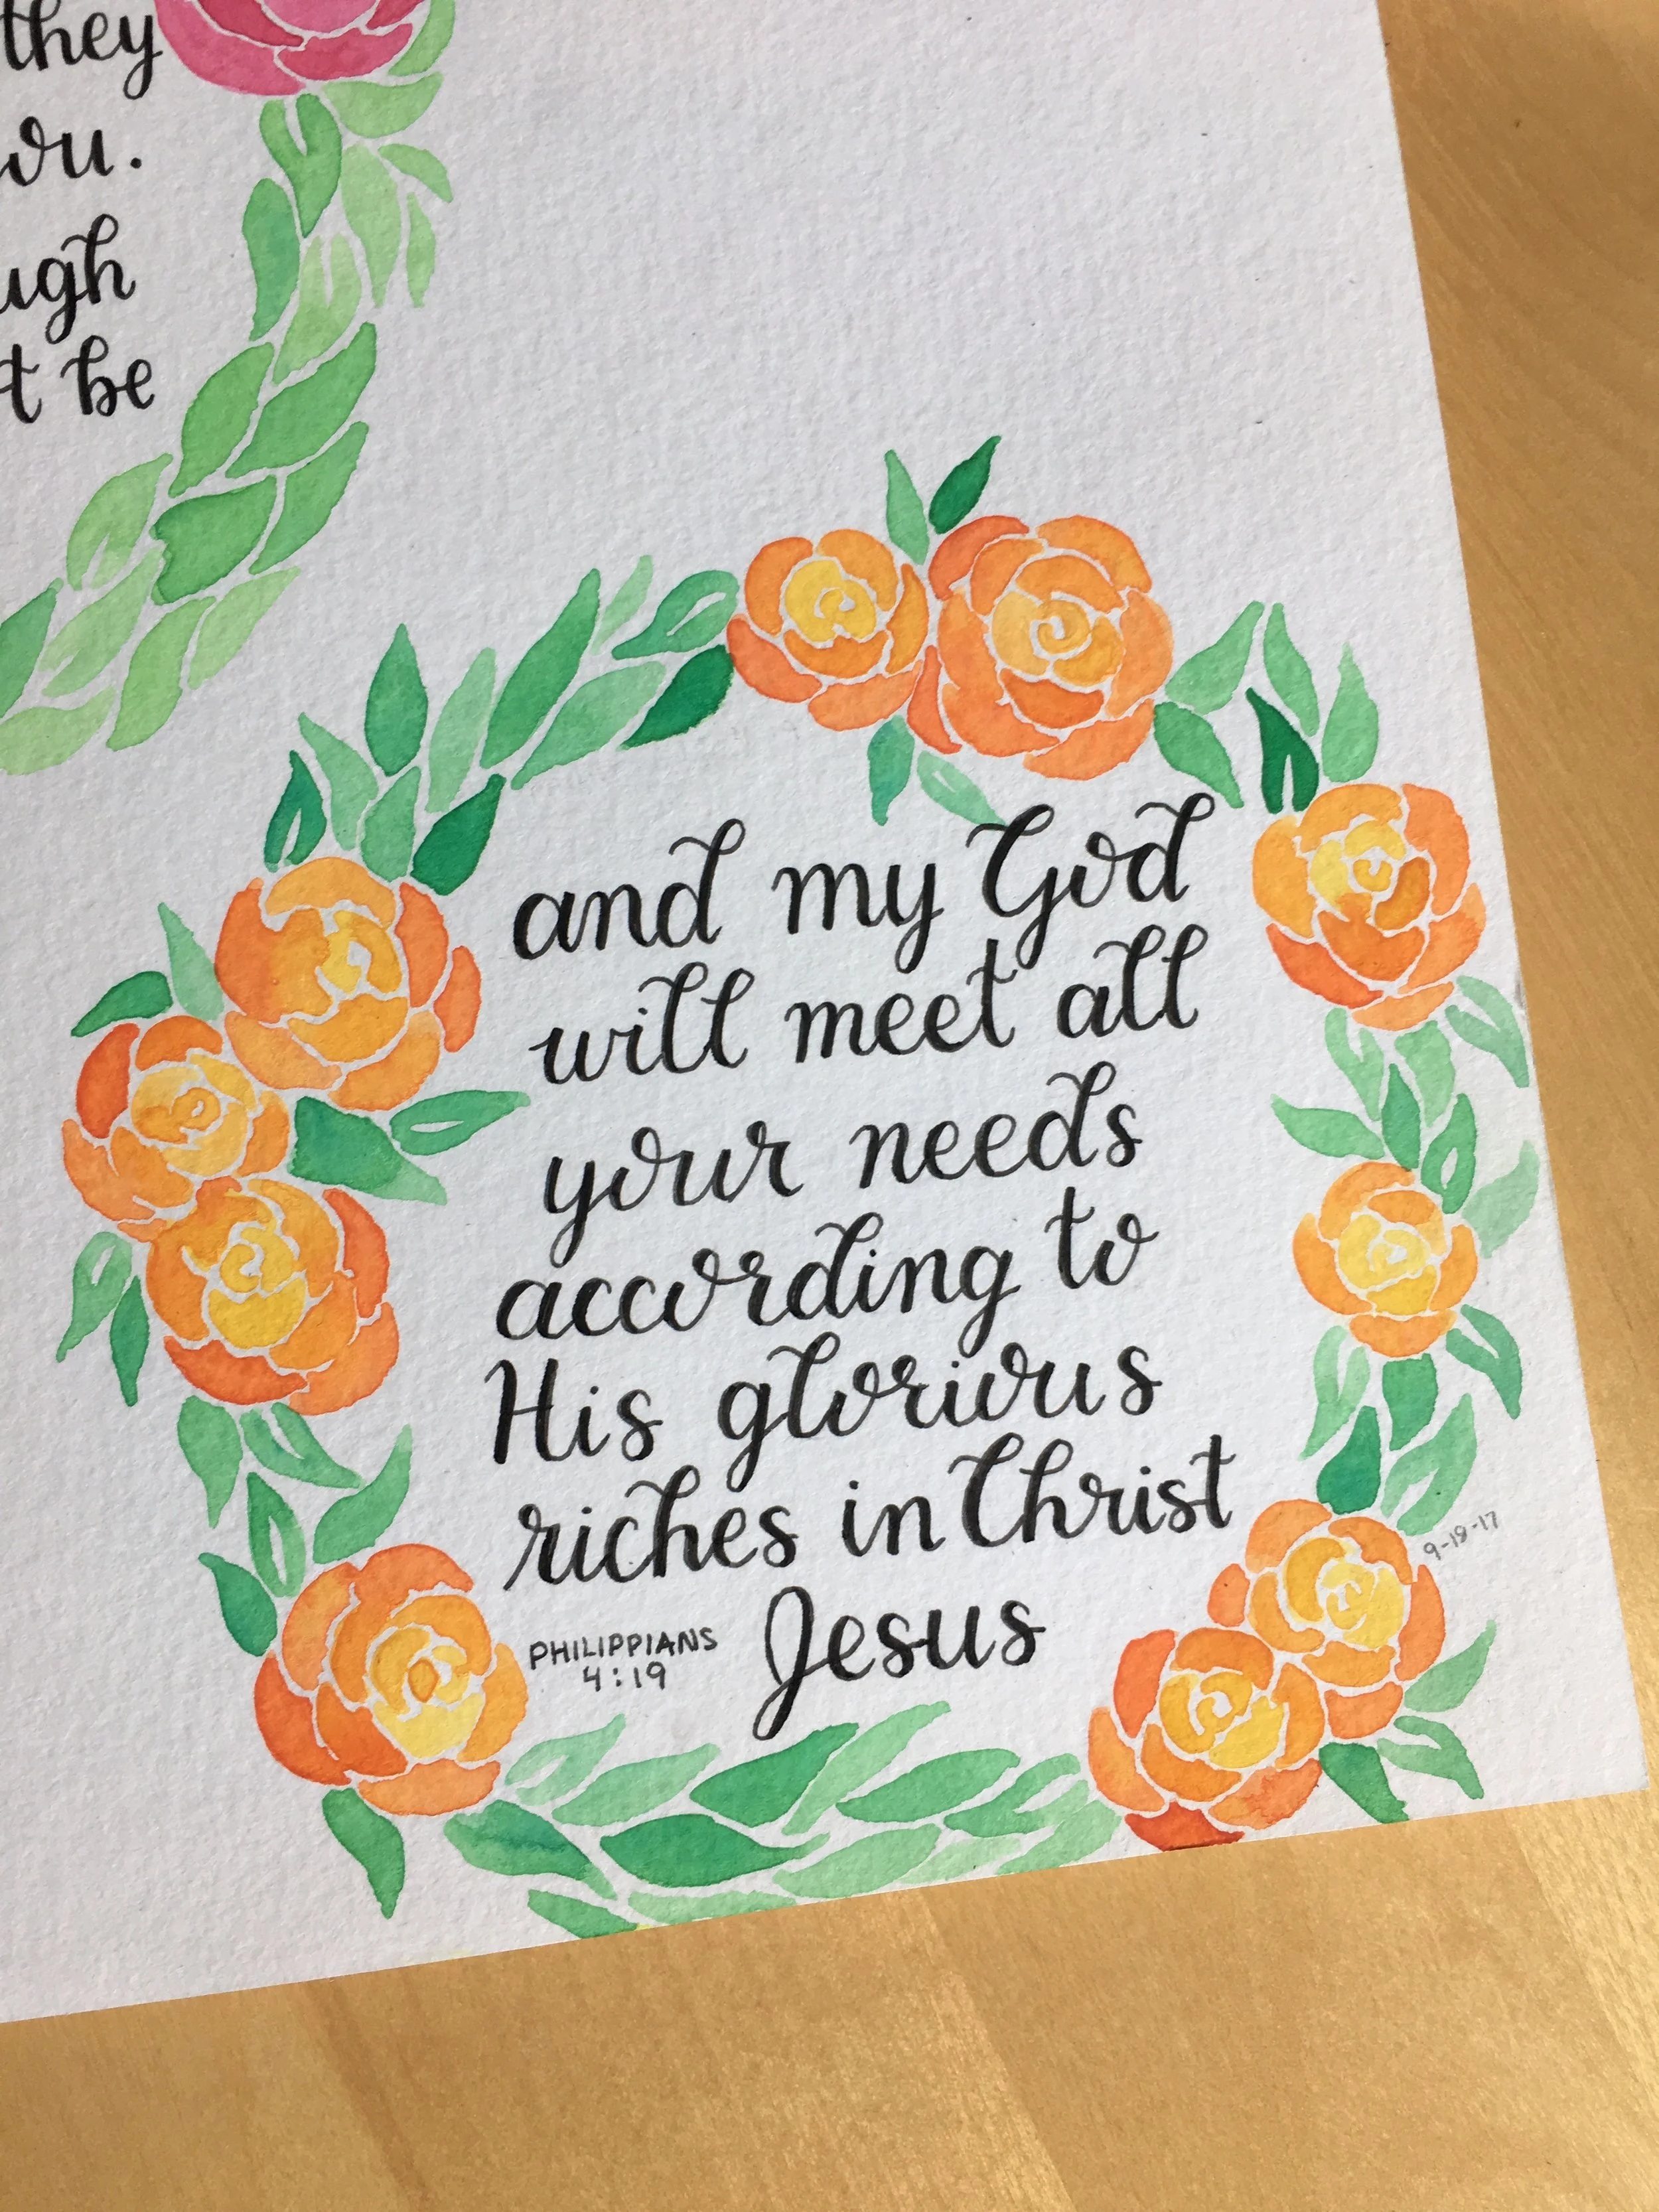 they
ou.
ugh
t be
and my God
will meet all
your needs
according to
His glorious
riches in Christ
Jesus
PHILIPPIANS
4:19
9-18-17